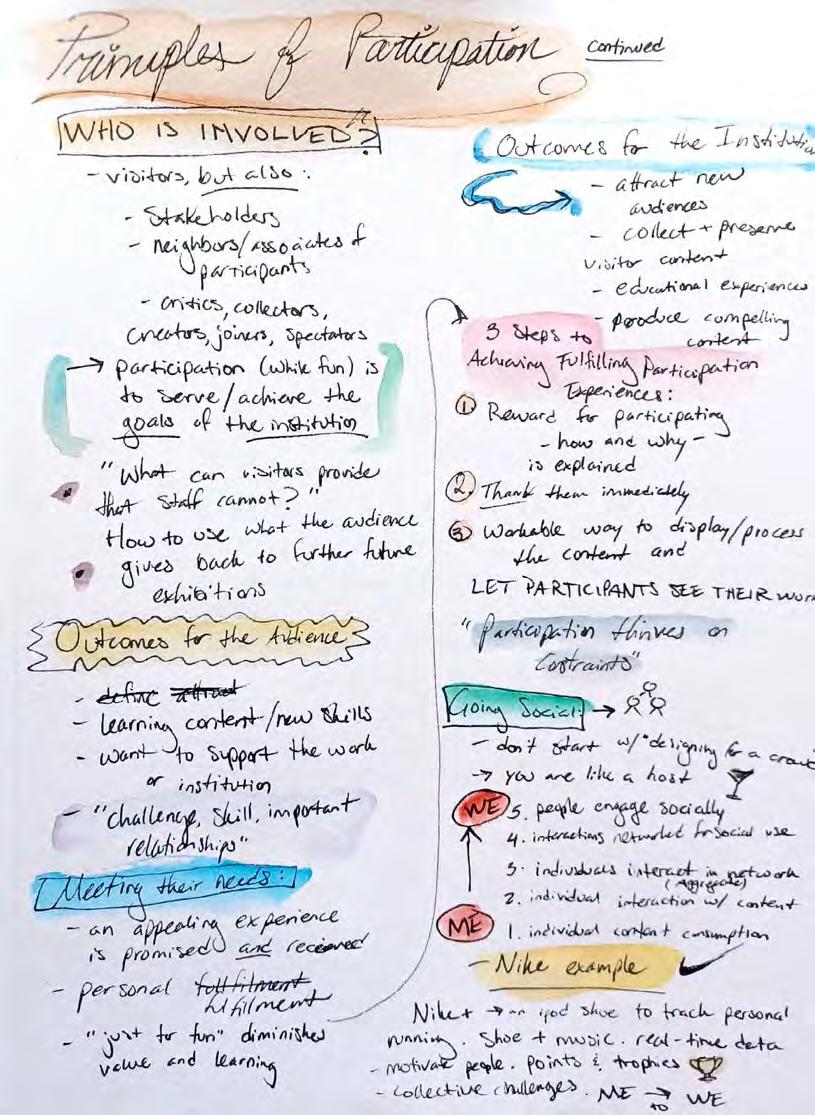 Principles of Participation continued
WHO IS INVOLVED?
- visitors, but also:
- Stakeholders
- neighbors/associates of
participants
- critics, collectors,
creators, joiners, spectators
→ participation (while fun) is
to serve/achieve the
goals of the institution
"What can visitors provide
that staff cannot?"
How to use what the audience
gives back to further future
exhibitions
Outcomes for the Audience
- define attract
- learning content/new skills
- want to support the work
or institution
- "challenge, skill, important
relationships"
Meeting their needs:
- an appealing experience
is promised and recieved
- personal fullfilment
fulfilment
- "just for fun" diminishes
value and learning
Outcomes for the Institutio
- attract new
audiences
- collect + preserve
visitor content
- educational experiences
- produce compelling
content
3 Steps to
Achieving Fulfilling Participation
Experiences:
1. Reward for participating
- how and why -
is explained
2. Thank them immediately
3. Workable way to display/process
the content and
LET PARTICIPANTS SEE THEIR WOR
"Participation thrives on
Constraints"
Going Social: →
- don't start w/ "designing for a crow
→ you are like a host
WE 5. people engage socially
4. interactions networked for social use
3. individuals interact in network
(Aggregate)
2. individual interaction w/ content
ME 1. individual content consumption
- Nike example
Nike+ → an ipod shoe to track personal
running. Shoe + music. real-time data
- motivate people. points & trophies
- collective challenges. ME → to WE